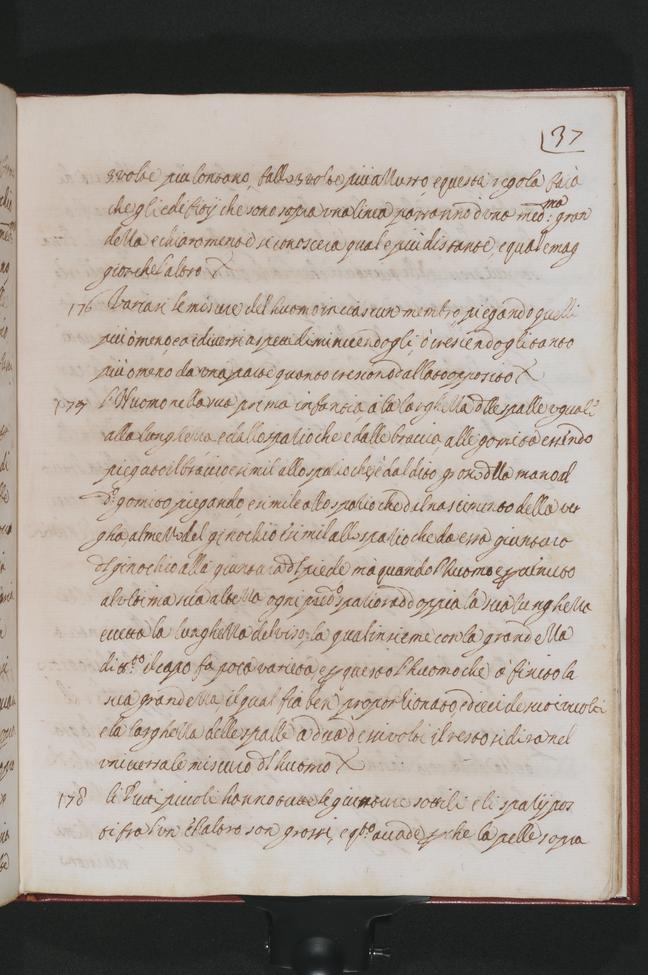 37
3 volte più lontano, fallo 3 volte più azzurro, e questa regola farà
che gli edifitij che sono sopra una linea parranno d'una med:ma gran
dezza e chiaramente si conoscera qual è più distante, e qual è mag
gior che l'altro
176 Variar le misure del huomo in ciascun membro, piegando quelli
più ò meno, e à diversi aspetti diminuendogli, ò crescendogli tanto
più ò meno da una parte quanto crescono dall lato opposito
177 L'Huomo nella sua prima infantia, à la larghezza dlle spalle ugual
alla lunghezza e dello spatio che è dalle braccia, alle gomita essendo
piegato il braccio e simil allo spatio che è dal dito gros dlla mano al
d.o gomito piegando e simile allo spatio che dal nascimento della ver
gha al mezzo del ginochio è simil allo spatio che da essa giuntura
dl ginochio alla giuntura dl piede ma quando l'huomo è pervenuto
al ultima sua altezza ogni pred.o spatio raddoppia la sua lunghezza
eccetto la lunghezza del viso, la qual insieme con la grandezza
di tt.o il capo fa poca varietà, e per questo l'huomo che à finito la
sua grandezza, il qual sia ben proportionato è dieci de suoi volti
e la larghezza delle spalle è dua de si volti il resto si dirà nel
universale misura dl huomo
178 li Putti piccoli hanno tutte le giunture sottili e li spatij pos
ti fra l'un e l'altro son grossi, e q.to accade perche la pelle sopra